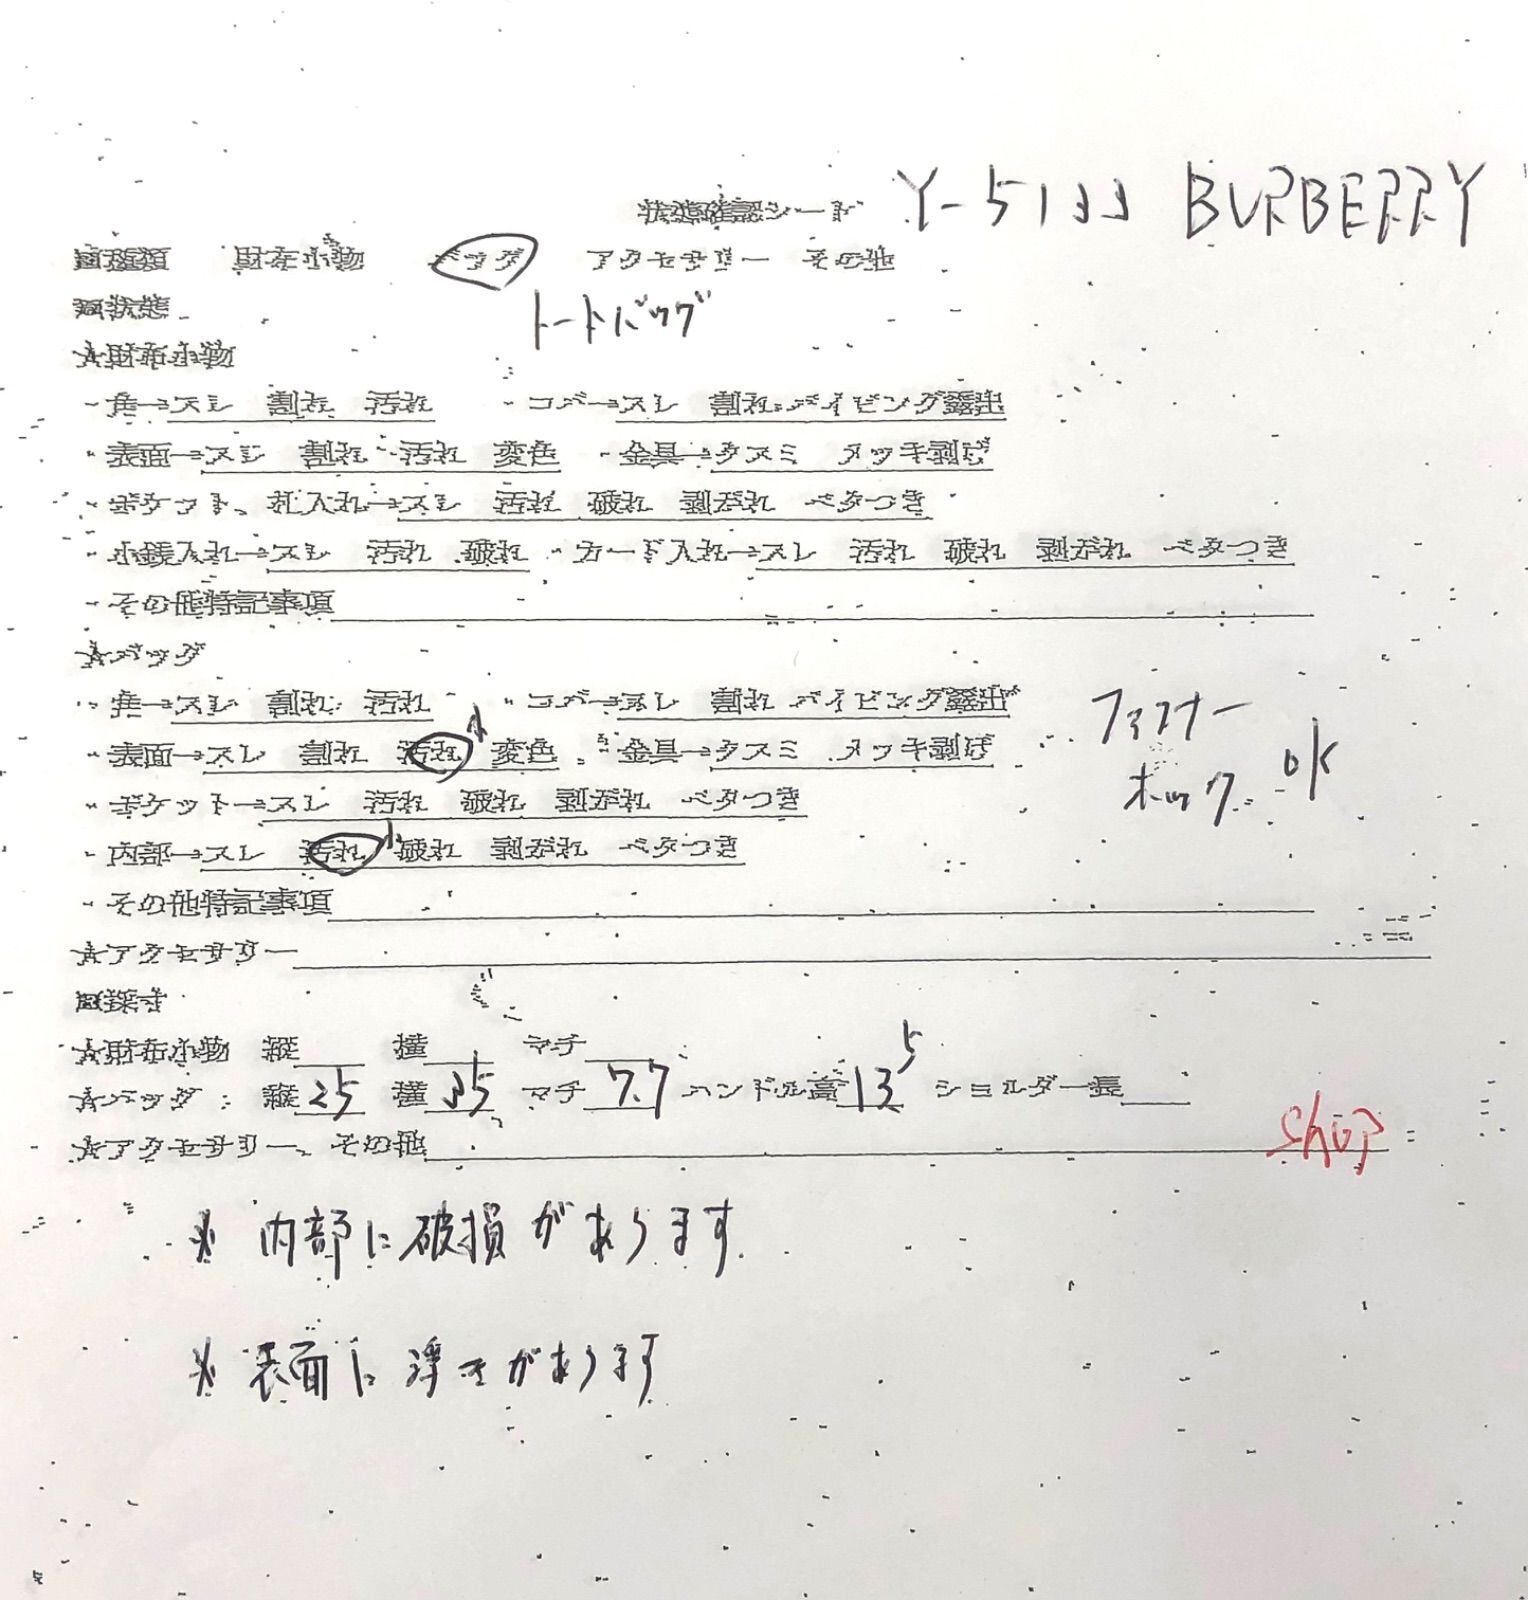 状態確認シート Y-5133 BURBERRY
■種類 財布小物 バッグ アクセサリー その他
■状態 トートバッグ
★財布小物
・角→スレ 割れ 汚れ ・コバ→スレ 割れ パイピング露出
・表面→スレ 割れ 汚れ 変色 ・金具→クスミ メッキ剥げ
・ポケット、札入れ→スレ 汚れ 破れ 剥がれ ベタつき
・小銭入れ→スレ 汚れ 破れ ・カード入れ→スレ 汚れ 破れ 剥がれ ベタつき
・その他特記事項
★バッグ
・角→スレ 割れ 汚れ ・コバ→スレ 割れ パイピング露出 ファスナー
・表面→スレ 割れ 汚れ 小 変色 ・金具→クスミ メッキ剥げ ホック OK
・ポケット→スレ 汚れ 破れ 剥がれ ベタつき
・内部→スレ 汚れ 小 破れ 剥がれ ベタつき
・その他特記事項
★アクセサリー
■採寸
★財布小物 縦 横 マチ
★バッグ : 縦 25 横 35 マチ 7.7 ハンドル高 13.5 ショルダー長
★アクセサリー、その他 SHOP
※ 内部に破損があります
※ 表面に浮きがあります